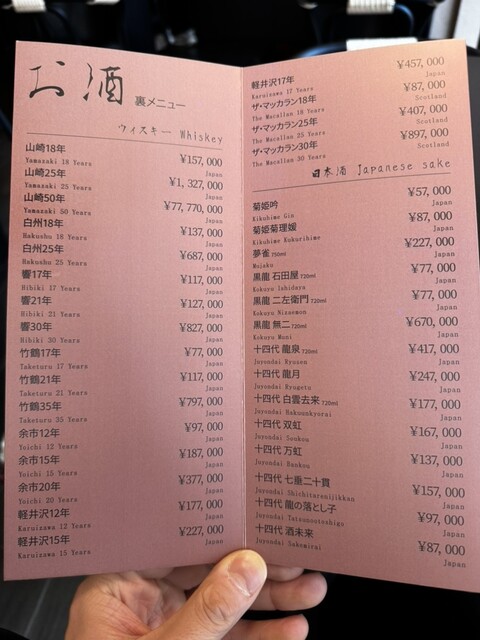 お酒 裏メニュー
ウィスキー Whiskey
山崎18年 ¥157,000
Yamazaki 18 Years Japan
山崎25年 ¥1,327,000
Yamazaki 25 Years Japan
山崎50年 ¥77,770,000
Yamazaki 50 Years Japan
白州18年 ¥137,000
Hakushu 18 Years Japan
白州25年 ¥687,000
Hakushu 25 Years Japan
響17年 ¥117,000
Hibiki 17 Years Japan
響21年 ¥127,000
Hibiki 21 Years Japan
響30年 ¥827,000
Hibiki 30 Years Japan
竹鶴17年 ¥77,000
Taketuru 17 Years Japan
竹鶴21年 ¥117,000
Taketuru 21 Years Japan
竹鶴35年 ¥797,000
Taketuru 35 Years Japan
余市12年 ¥97,000
Yoichi 12 Years Japan
余市15年 ¥187,000
Yoichi 15 Years Japan
余市20年 ¥377,000
Yoichi 20 Years Japan
軽井沢12年 ¥177,000
Karuizawa 12 Years Japan
軽井沢15年 ¥227,000
Karuizawa 15 Years Japan
軽井沢17年 ¥457,000
Karuizawa 17 Years Japan
ザ・マッカラン18年 ¥87,000
The Macallan 18 Years Scotland
ザ・マッカラン25年 ¥407,000
The Macallan 25 Years Scotland
ザ・マッカラン30年 ¥897,000
The Macallan 30 Years Scotland
日本酒 Japanese sake
菊姫吟 ¥57,000
Kikuhime Gin Japan
菊姫菊理媛 ¥87,000
Kikuhime Kukurihime Japan
夢雀 750ml ¥227,000
Mujaku Japan
黒龍 石田屋 720ml ¥77,000
Kokuryu Ishidaya Japan
黒龍 二左衛門 720ml ¥77,000
Kokuryu Nizaemon Japan
黒龍 無二 720ml ¥670,000
Kokuryu Muni Japan
十四代 龍泉 720ml ¥417,000
Juyondai Ryusen Japan
十四代 龍月 ¥247,000
Juyondai Ryugetu Japan
十四代 白雲去来 720ml ¥177,000
Juyondai Hakuunkyorai Japan
十四代 双虹 ¥167,000
Juyondai Soukou Japan
十四代 万虹 ¥137,000
Juyondai Bankou Japan
十四代 七垂二十貫 ¥157,000
Juyondai Shichitarenijikkan Japan
十四代 龍の落とし子 ¥97,000
Juyondai Tatsunootoshigo Japan
十四代 酒未来 ¥87,000
Juyondai Sakemirai Japan